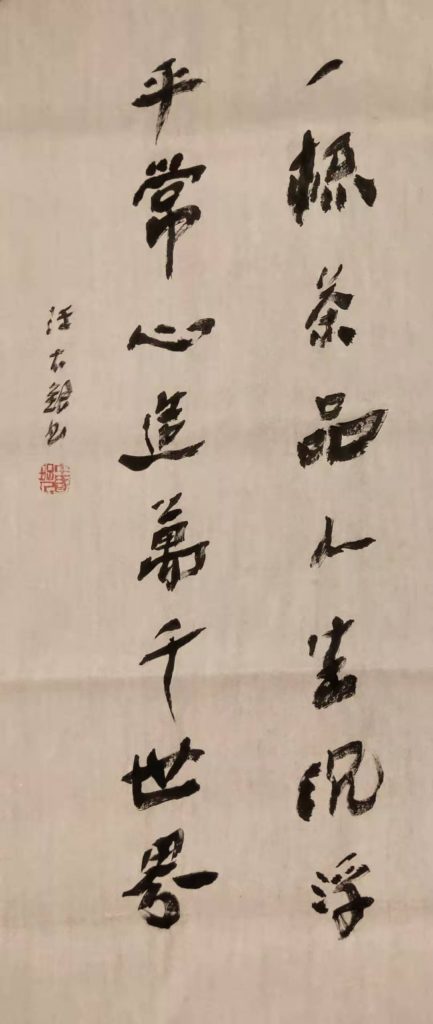 一杯茶品人生沉浮
平常心造萬千世界
书